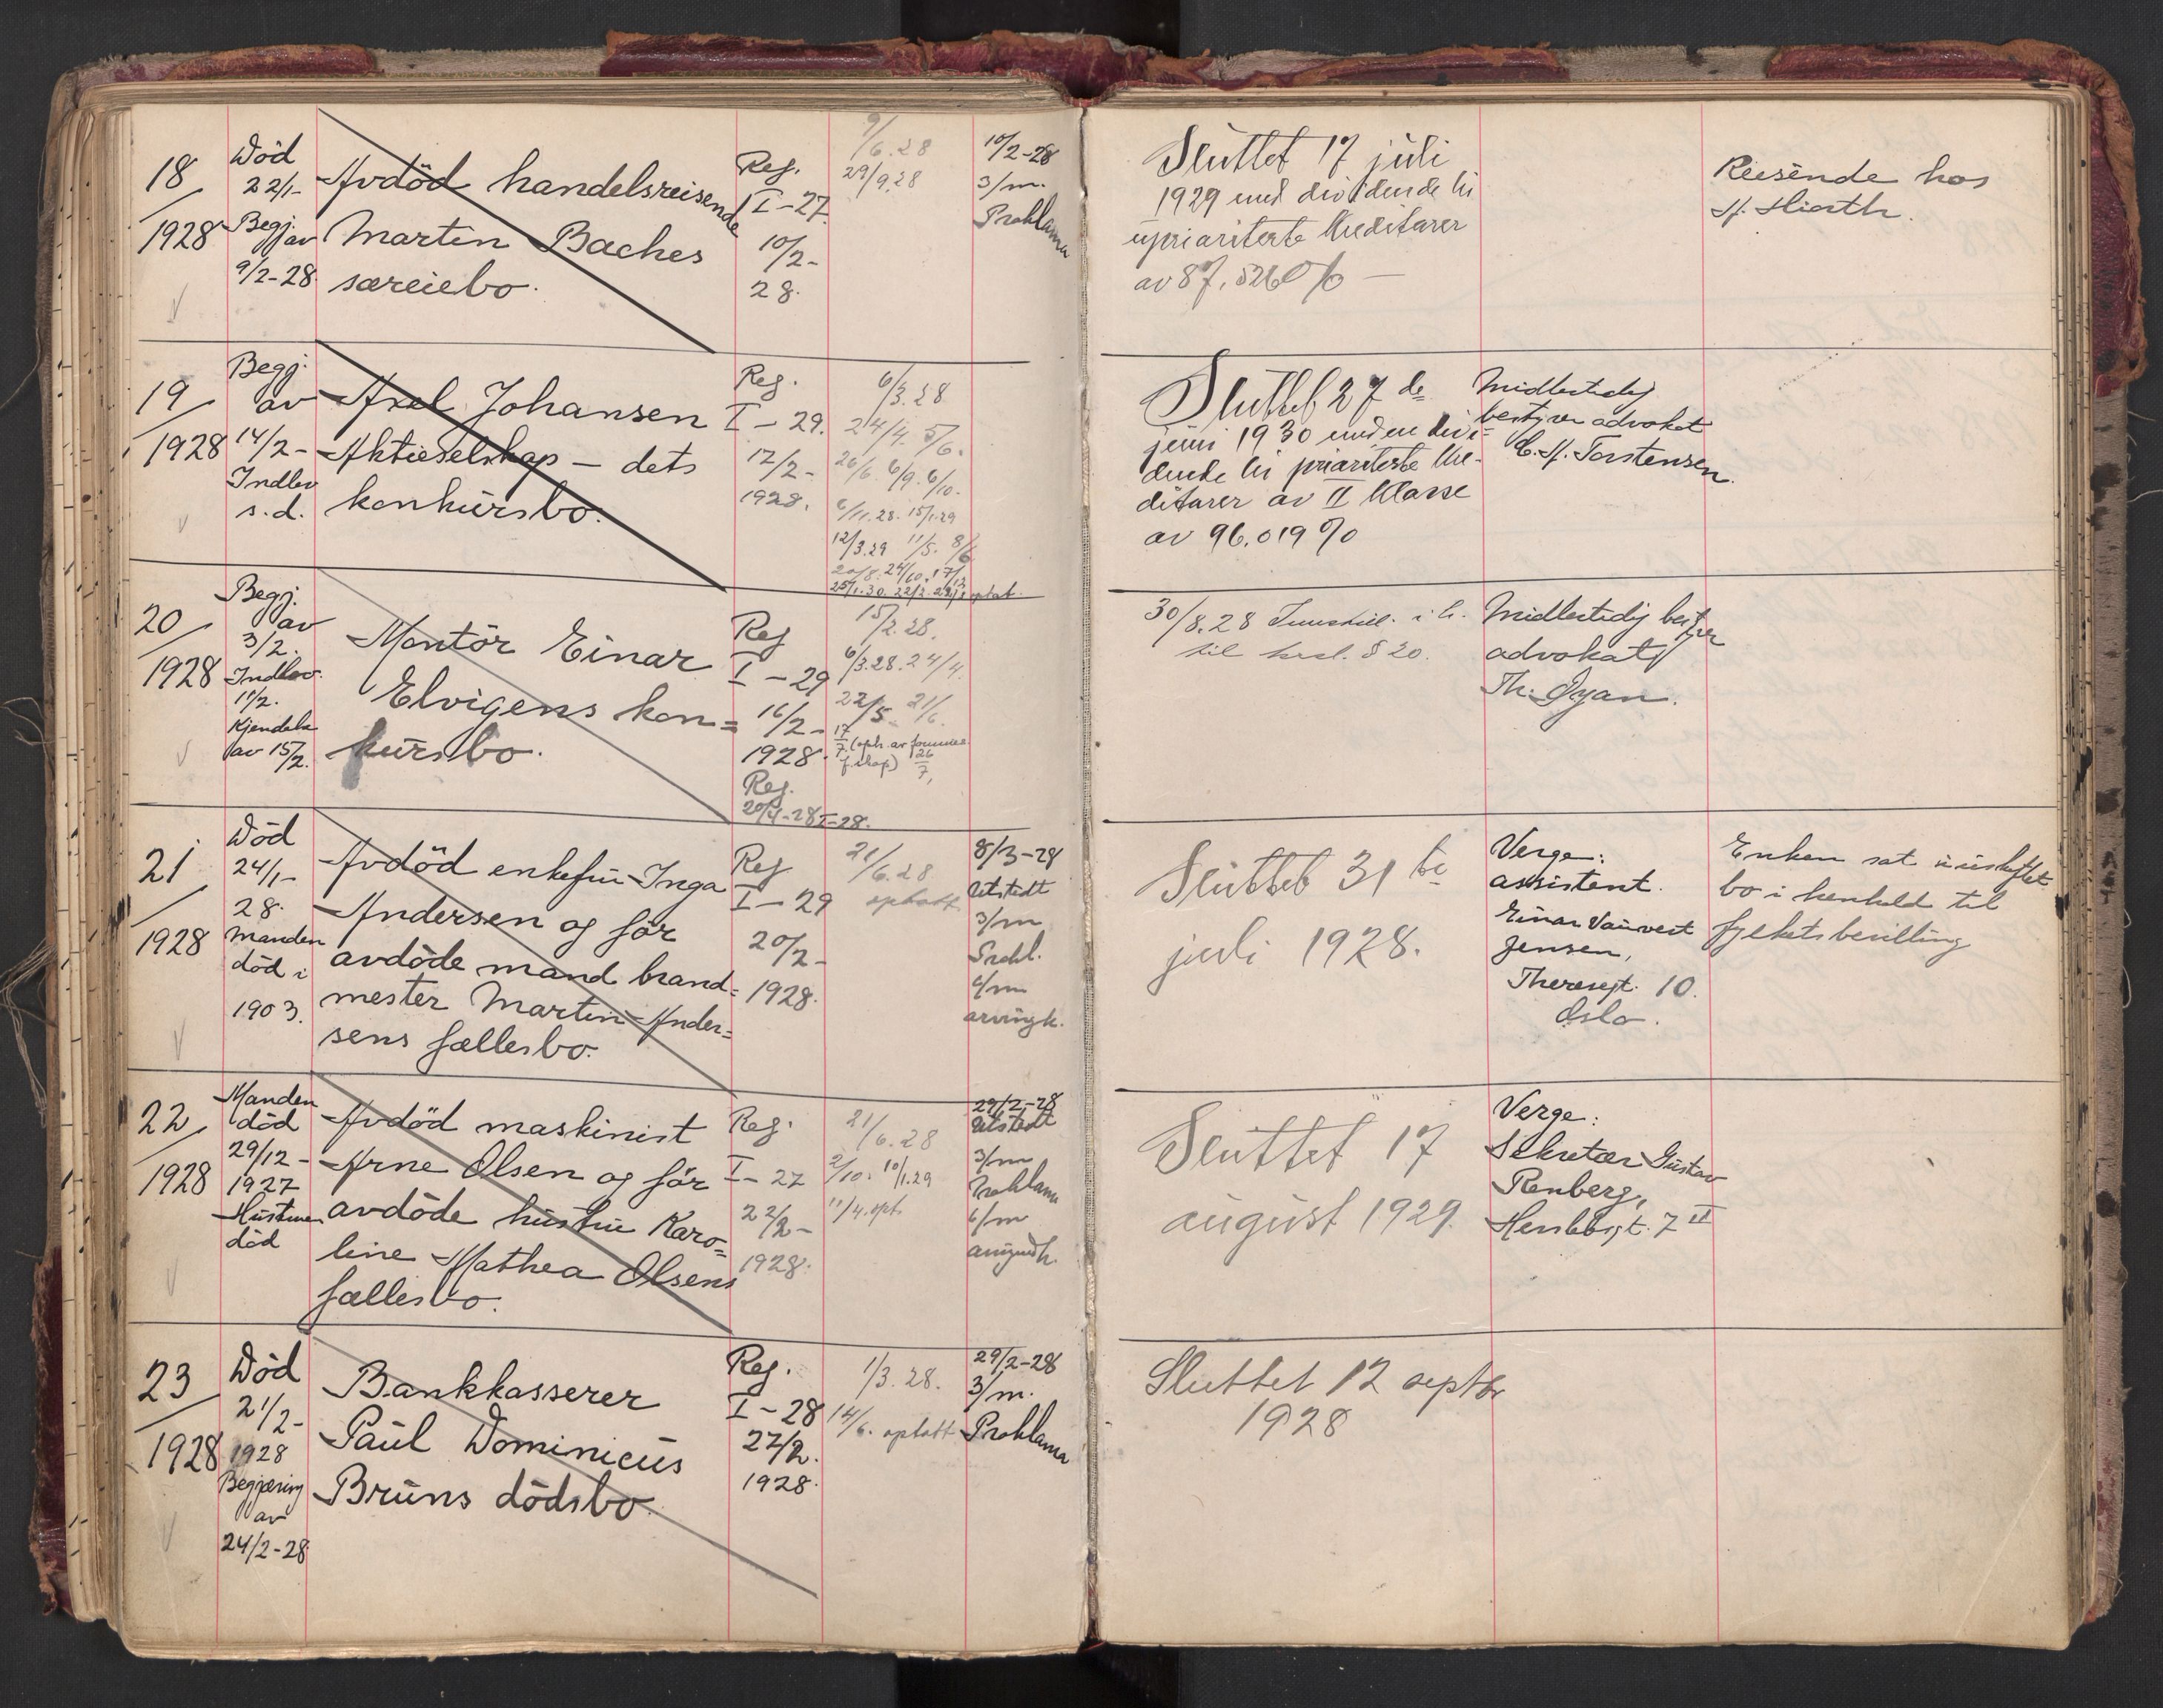 18
1928
Död
22/1-
Begj. av
9/2-28.
Avdöd handelsreisende
Martin Baches
særeiebo.
Reg.
I-27.
10/2-
28.
9/6.28
29/9.28
10/2-28
3/m.
Proklama
Sluttet 17 juli
1929 med dividende til
upriariterte kreditorer
av 87,5260%
Reisende hos
H. Hiorth.
19
1928
Begj.
av
14/2-
Indlev
s.d.
Axel Johansen
Aktieselskap - dets
konkursbo.
Reg.
I-29.
17/2-
1928.
6/3.28
24/4. 5/6.
26/6. 6/9. 6/10.
6/11.28. 15/1.29
12/3.29 11/5. 8/6
20/8. 24/10. 17/12
Sluttet 27 de
juni 1930 med en divi-
dende til prioriterte kre-
ditorer av II klasse
av 96,019%
Midlertidig
bestyrer advokat
C. H. Torstensen.
20
1928
Begj.
av
3/2.
Indlev.
11/2.
Kjendelse
av 15/2.
Montör Einar
Elvigens kon=
kursbo.
Reg
I-29
16/2-
1928.
Reg.
20/4-28 I-28.
15/2.28.
6/3.28. 24/4.
22/5. 21/6.
17/7.
26/7,
30/8.28 i h.
til § 20.
Midlertidig bestyrer
advokat
Th. Dyan.
21
1928
Död
24/1-
28.
Manden
död i
1903.
Avdöd enkefru Inga
Andersen og för
avdöde mand brand=
mester Martin Ander=
sens fællesbo.
Reg
I-29
20/2-
1928.
21/6.28
optatt
8/3-28
Utstedt
3/m
Prokl.
6/m
arvingk.
Sluttet 31 te
juli 1928.
Verge:
assistent.
Einar Vauvert
Jensen,
Theresegt. 10.
Oslo.
Enken sat i uskiftet
bo i henhold til
fylketsbevilling
22
1928
Manden
död
29/12-
1927
Hustruen
död
Avdöd maskinist
Arne Olsen og för
avdöde hustru Karo=
line Mathea Olsens
fællesbo.
Reg.
I-27
22/2-
1928.
21/6.28
2/10. 10/1.29
11/4. opt.
29/2-28
Utstedt
3/m
Proklama
6/m
Sluttet 17
august 1929.
Verge:
Sekretær Gustav
Renberg,
7 II
23
1928
Död
21/2-
1928
Begjæring
av
24/2-28
Bankkasserer
Paul Dominicus
Bruns dödsbo.
Reg.
I-28
27/2.
1928.
1/3.28.
14/6. optatt
29/2-28
3/m.
Proklama
Sluttet 12 septbr
1928